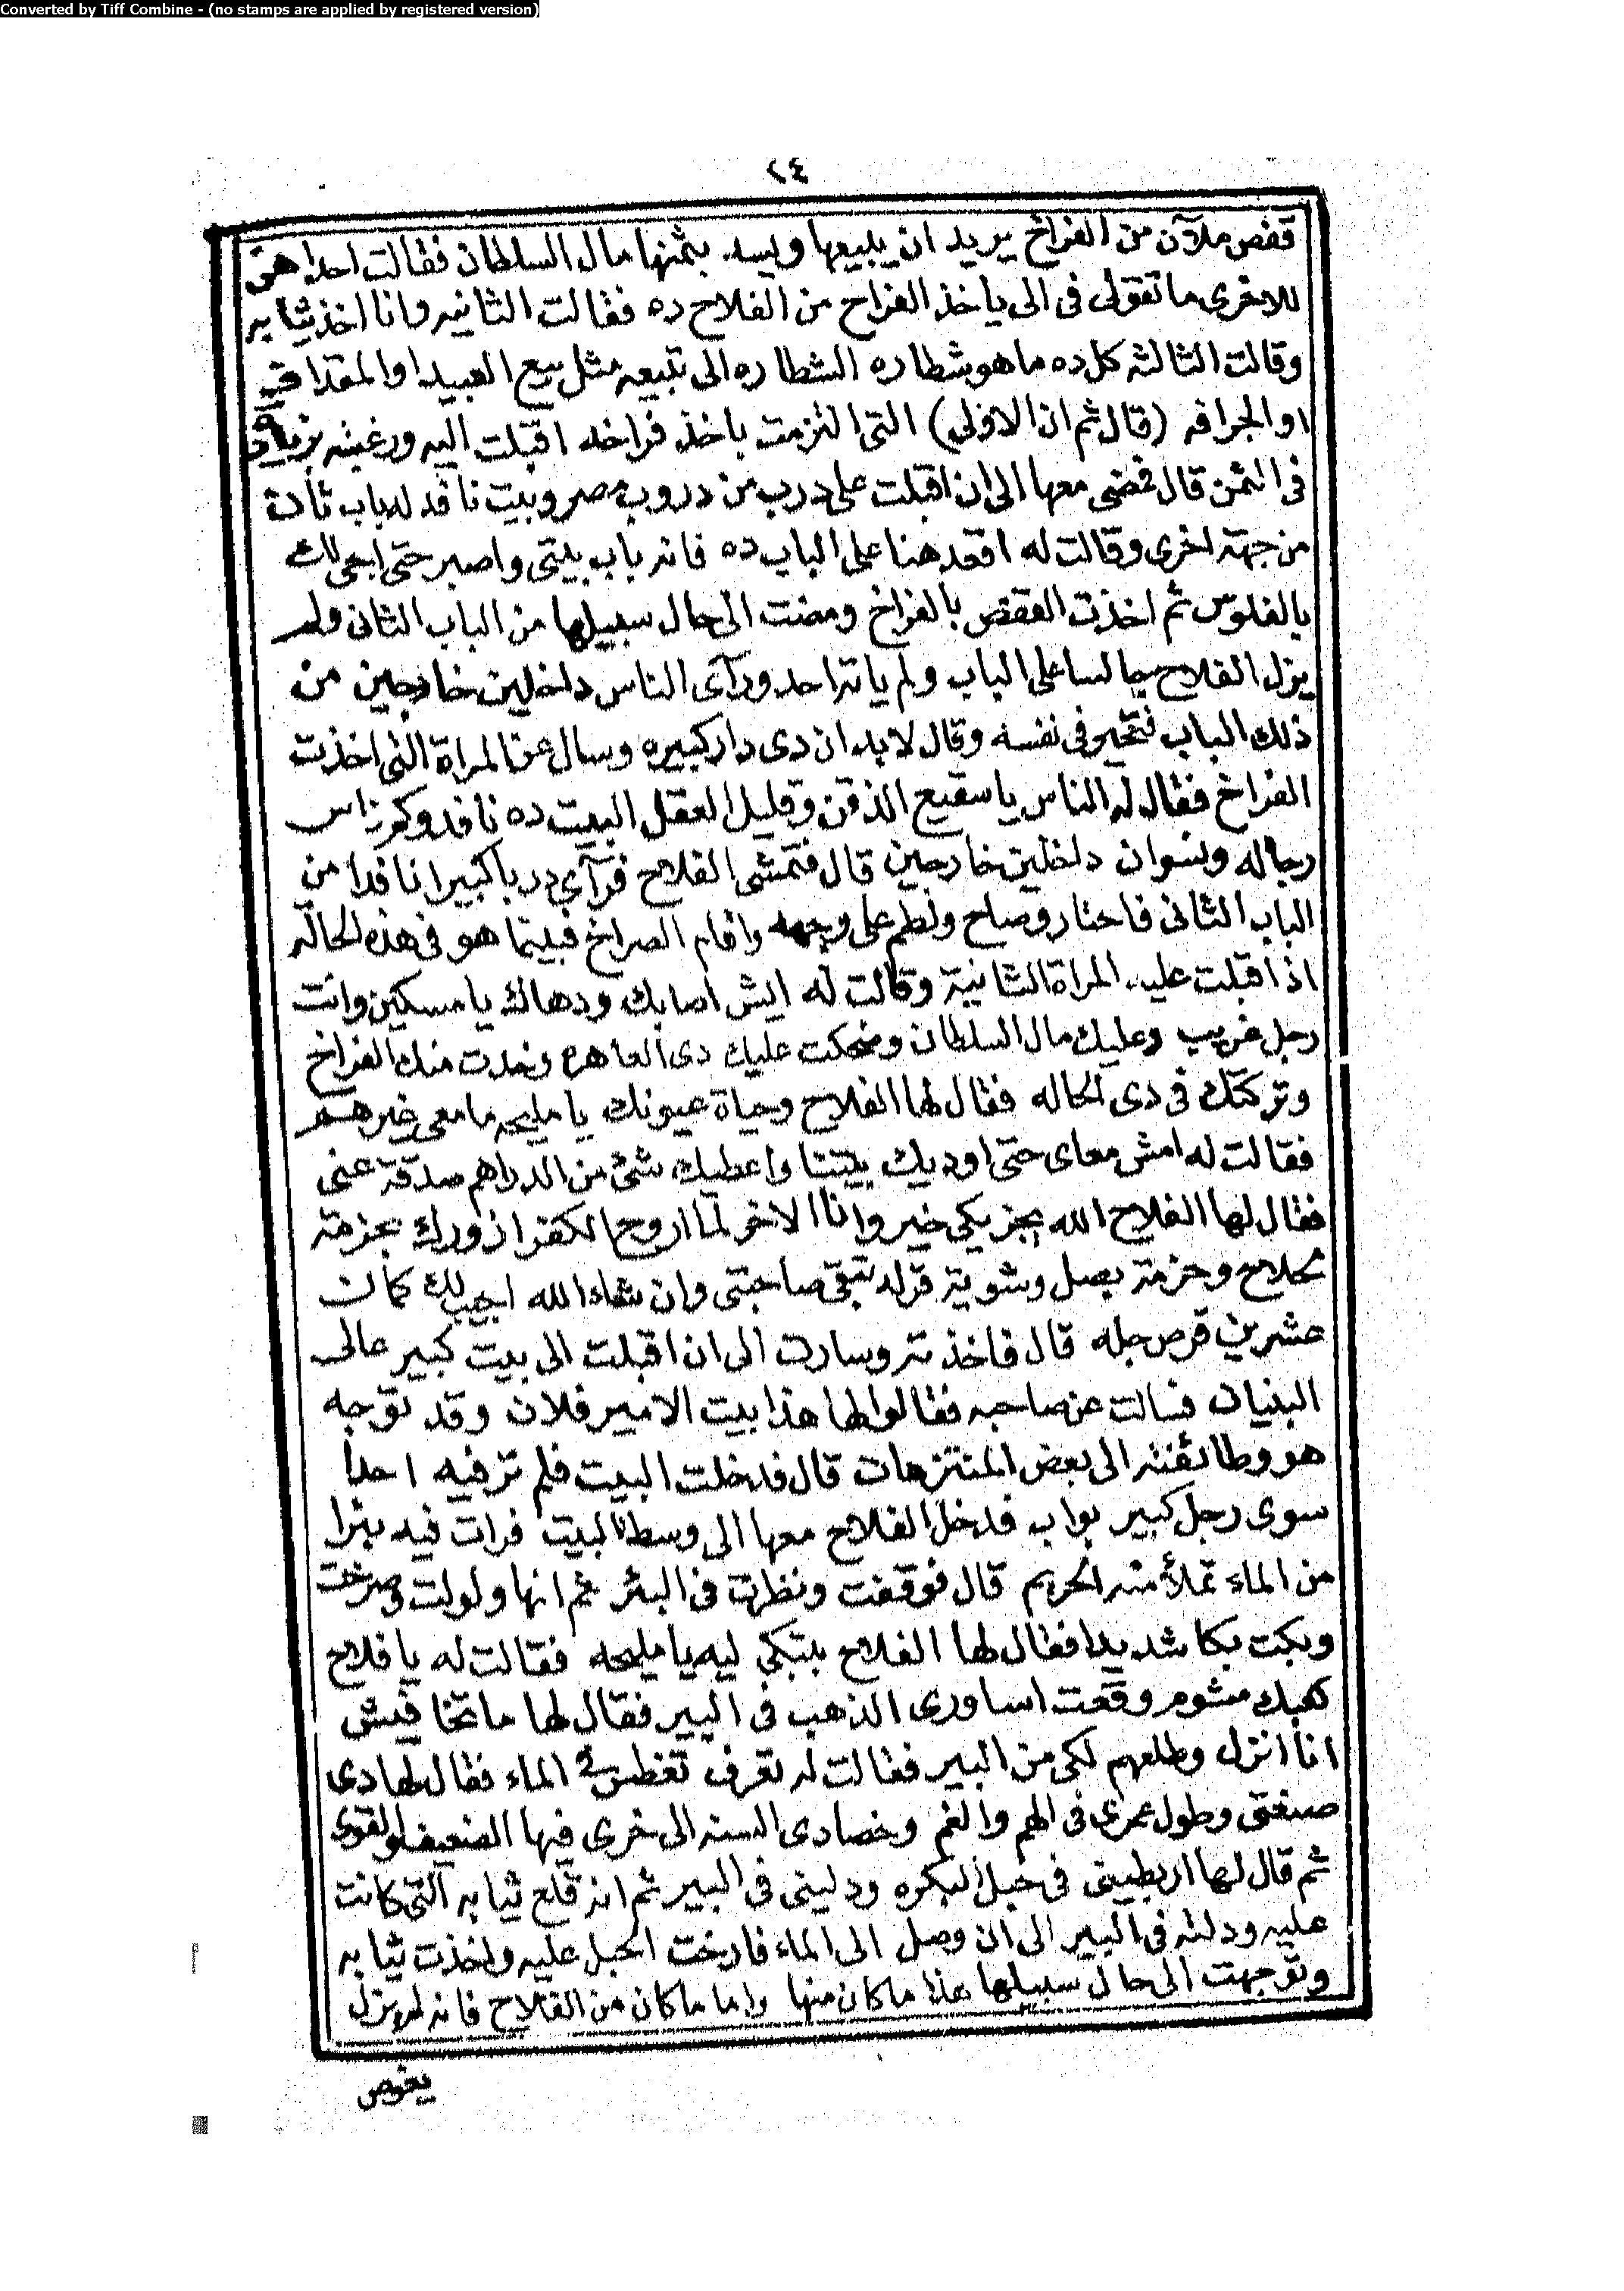 Converted by Tiff Combine - (no stamps are applied by registered version)
٢٤
قفص ملآن من الفراخ يريد ان يبيعها ويسد بثمنها مال السلطان فقالت احداهن
للاخرى ما تقولى فى الى ياخذ الفراخ من الفلاح ده فقالت الثانيه وانا اخذ ثيابه
وقالت الثالثه كل ده ما هو شطاره الشطاره الى تبيعه مثل بيع العبيد او المقداف
او الجرافه (قال ثم ان الاولى) التى التزمت باخذ فراخه اقبلت اليه ورغبته بزياده
فى الثمن قال فمضى معها الى ان اقبلت على درب من دروب مصر وبيت نافد له باب تان
من جهة اخرى وقالت له اقعد هنا على الباب ده فانه باب بيتى واصبر حتى اجى لك
بالفلوس ثم اخذت القفص بالفراخ ومضت الى حال سبيلها من الباب الثانى ولم
يزل الفلاح جالسا على الباب ولم ياته احد ورآى الناس داخلين خارجين من
ذلك الباب فتحير فى نفسه وقال لابد ان دى دار كبيره وسال عن المراة التى اخذت
الفراخ فقال له الناس يا سقيع الذقن وقليل العقل البيت ده نافد وكم ناس
رجاله ونسوان داخلين خارجين قال فتمشى الفلاح فرآى دربا كبيرا نافدا من
الباب الثانى فاحتار وصاح ولطم على وجهه واقام الصراخ فبينما هو فى هذه الحاله
اذ اقبلت عليه المراة الثانية وقالت له ايش اصابك ودهاك يا مسكين وانت
رجل غريب وعليك مال السلطان وضحكت عليك دى العاهره وخدت منك الفراخ
وتركتك فى دى الحاله فقال لها الفلاح وحياة عيونك يا مليحه ما معى غيرهم
فقالت له امش معاى حتى اوديك بيتنا واعطيك شئ من الدراهم صدقة عنى
فقال لها الفلاح الله يجزيكى خير وانا الاخر لما اروح الكفر ازورك بجزمة
جلاح وحزمة بصل وشوية قرله تبقى صاحبتى وان شاء الله اجيب لك كمان
عشرين قرص جله قال فاخذته وسارت الى ان اقبلت الى بيت كبير عالى
البنيان فسالت عن صاحبه فقالوا لها هذا بيت الامير فلان وقد توجه
هو وطائفته الى بعض المنتزهات قال فدخلت البيت فلم تر فيه احدا
سوى رجل كبير بواب فدخل الفلاح معها الى وسط البيت فرات فيه بئرا
من الماء تملأ منه الحريم قال فوقفت ونظرت فى البئر ثم انها ولولت وصرخت
وبكت بكا شديدا فقال لها الفلاح بتبكى ليه يا مليحه فقالت له يا فلاح
كعبك مشوم وقعت اساورى الذهب فى البير فقال لها ما تخافيش
انا انزل وطلعهم لكى من البير فقالت له تعرف تغطس فى الماء فقال لها دى
صنعتى وطول عمرى فى الهم والغم وخصا دى السنه الى خرى فيها الضعيف والقوى
ثم قال لها اربطينى فى حبل البكره ودلينى فى البير ثم انه قلع ثيابه التى كانت
عليه ودلته فى البير الى ان وصل الى الماء فارخت الحبل عليه واخذت ثيابه
وتوجهت الى حال سبيلها هذا ما كان منها واما ما كان من الفلاح فانه لم يزل
يغوص